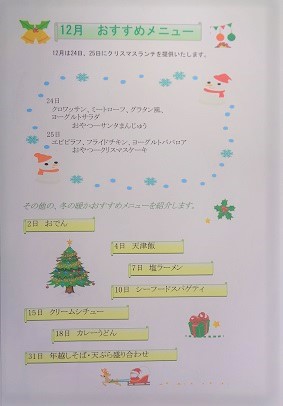 12月 おすすめメニュー
12月は24日、25日にクリスマスランチを提供いたします。
24日
クロワッサン、ミートローフ、グラタン風、
ヨーグルトサラダ
おやつ…サンタまんじゅう
25日
エビピラフ、フライドチキン、ヨーグルトババロア
おやつ…クリスマスケーキ
その他の、冬の暖かおすすめメニューを紹介します。
2日 おでん
4日 天津飯
7日 塩ラーメン
10日 シーフードスパゲティ
15日 クリームシチュー
18日 カレーうどん
31日 年越しそば・天ぷら盛り合わせ